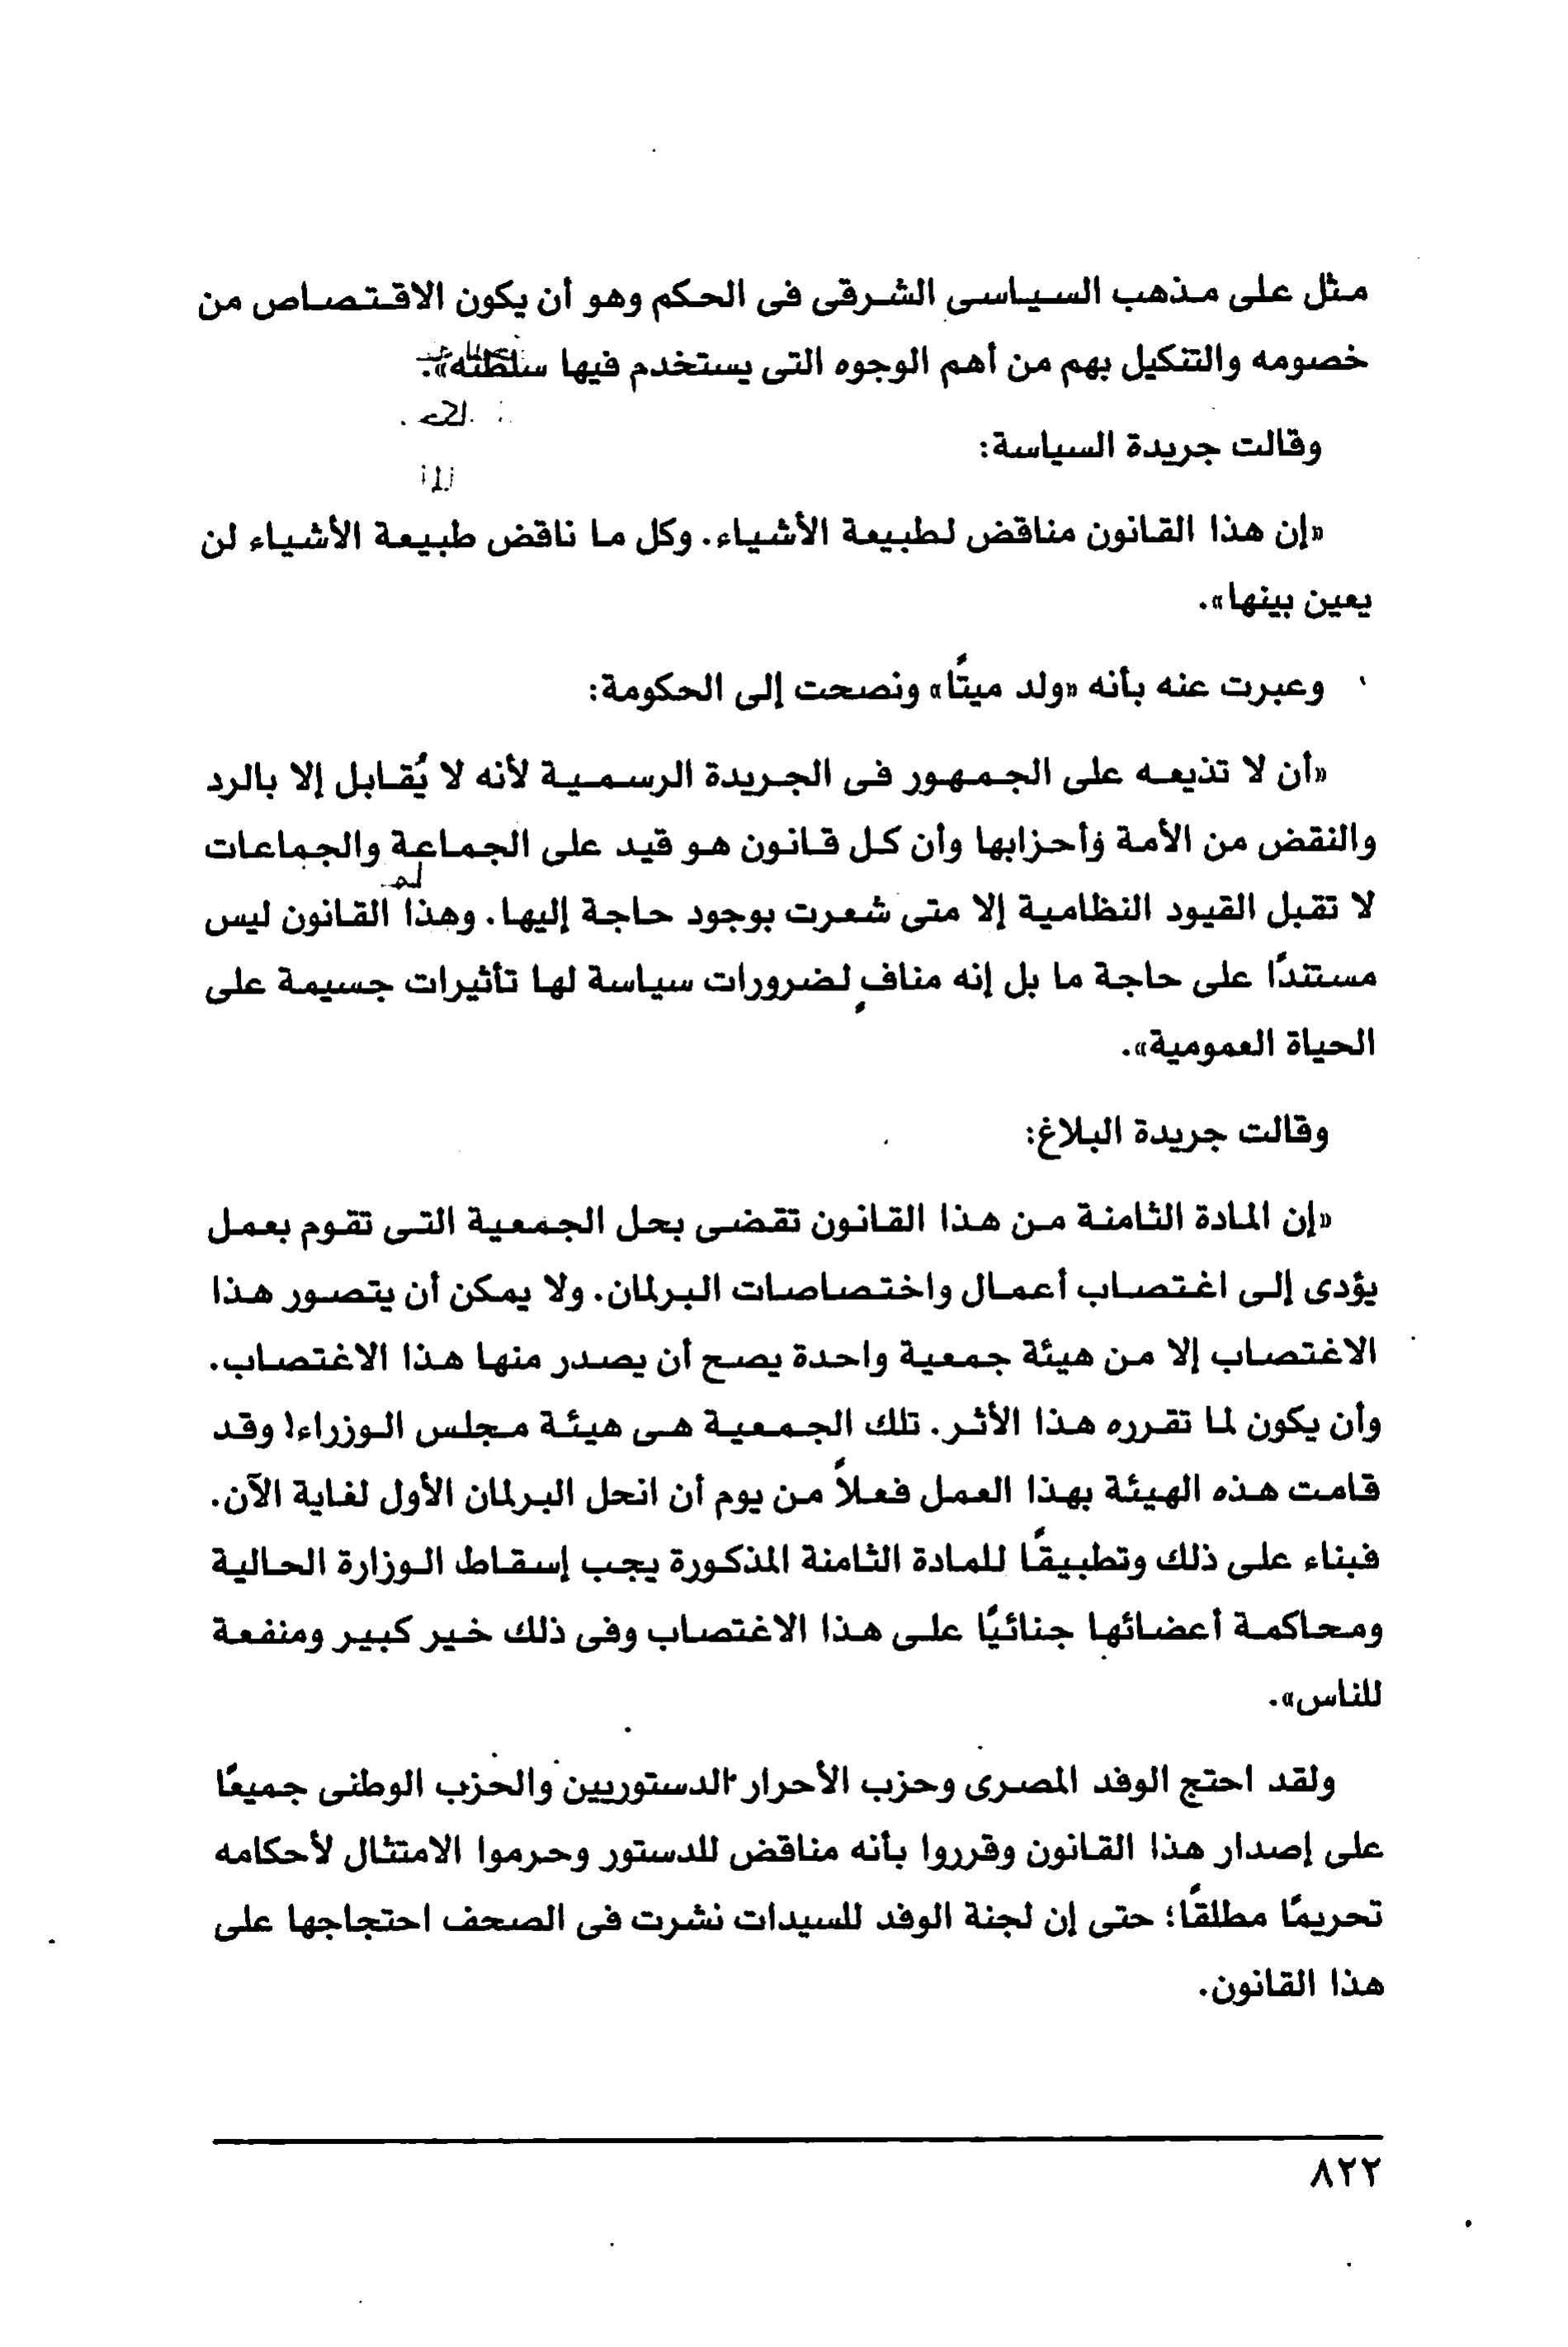 مثل على مذهب السياسى الشرقى فى الحكم وهو أن يكون الاقتصاص من
خصومه والتنكيل بهم من أهم الوجوه التى يستخدم فيها سلطته».
وقالت جريدة السياسة:
«إن هذا القانون مناقض لطبيعة الأشياء. وكل ما ناقض طبيعة الأشياء لن
يعين بينها».
وعبرت عنه بأنه «ولد ميتًا» ونصحت إلى الحكومة:
«أن لا تذيعه على الجمهور فى الجريدة الرسمية لأنه لا يُقابل إلا بالرد
والنقض من الأمة وأحزابها وأن كل قانون هو قيد على الجماعة والجماعات
لا تقبل القيود النظامية إلا متى شعرت بوجود حاجة إليها. وهذا القانون ليس
مستندًا على حاجة ما بل إنه منافٍ لضرورات سياسة لها تأثيرات جسيمة على
الحياة العمومية».
وقالت جريدة البلاغ:
«إن المادة الثامنة من هذا القانون تقضى بحل الجمعية التى تقوم بعمل
يؤدى إلى اغتصاب أعمال واختصاصات البرلمان. ولا يمكن أن يتصور هذا
الاغتصاب إلا من هيئة جمعية واحدة يصح أن يصدر منها هذا الاغتصاب.
وأن يكون لما تقرره هذا الأثر. تلك الجمعية هى هيئة مجلس الوزراء! وقد
قامت هذه الهيئة بهذا العمل فعلاً من يوم أن انحل البرلمان الأول لغاية الآن.
فبناء على ذلك وتطبيقًا للمادة الثامنة المذكورة يجب إسقاط الوزارة الحالية
ومحاكمة أعضائها جنائيًا على هذا الاغتصاب وفى ذلك خير كبير ومنفعة
للناس».
ولقد احتج الوفد المصرى وحزب الأحرار الدستوريين والحزب الوطنى جميعًا
على إصدار هذا القانون وقرروا بأنه مناقض للدستور وحرموا الامتثال لأحكامه
تحريمًا مطلقًا؛ حتى إن لجنة الوفد للسيدات نشرت فى الصحف احتجاجها على
هذا القانون.
٨٢٢